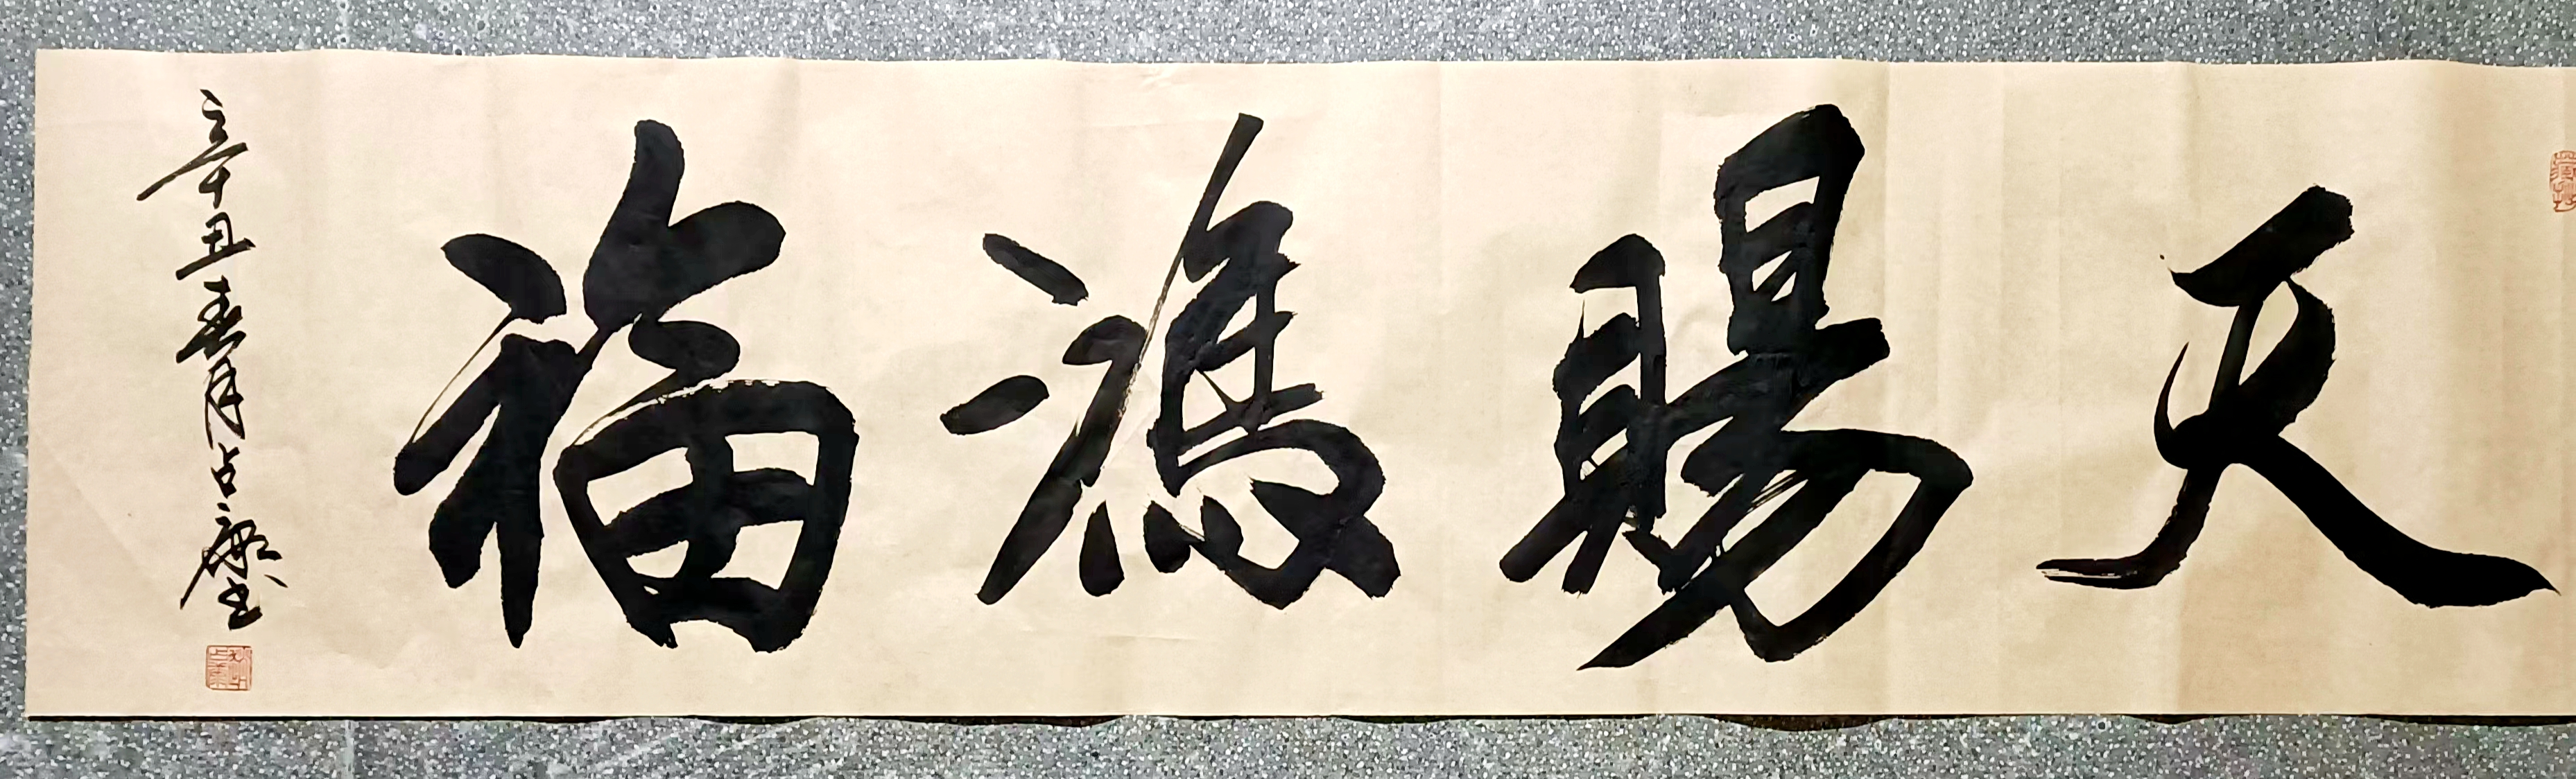 天賜鴻福
辛丑春月占书